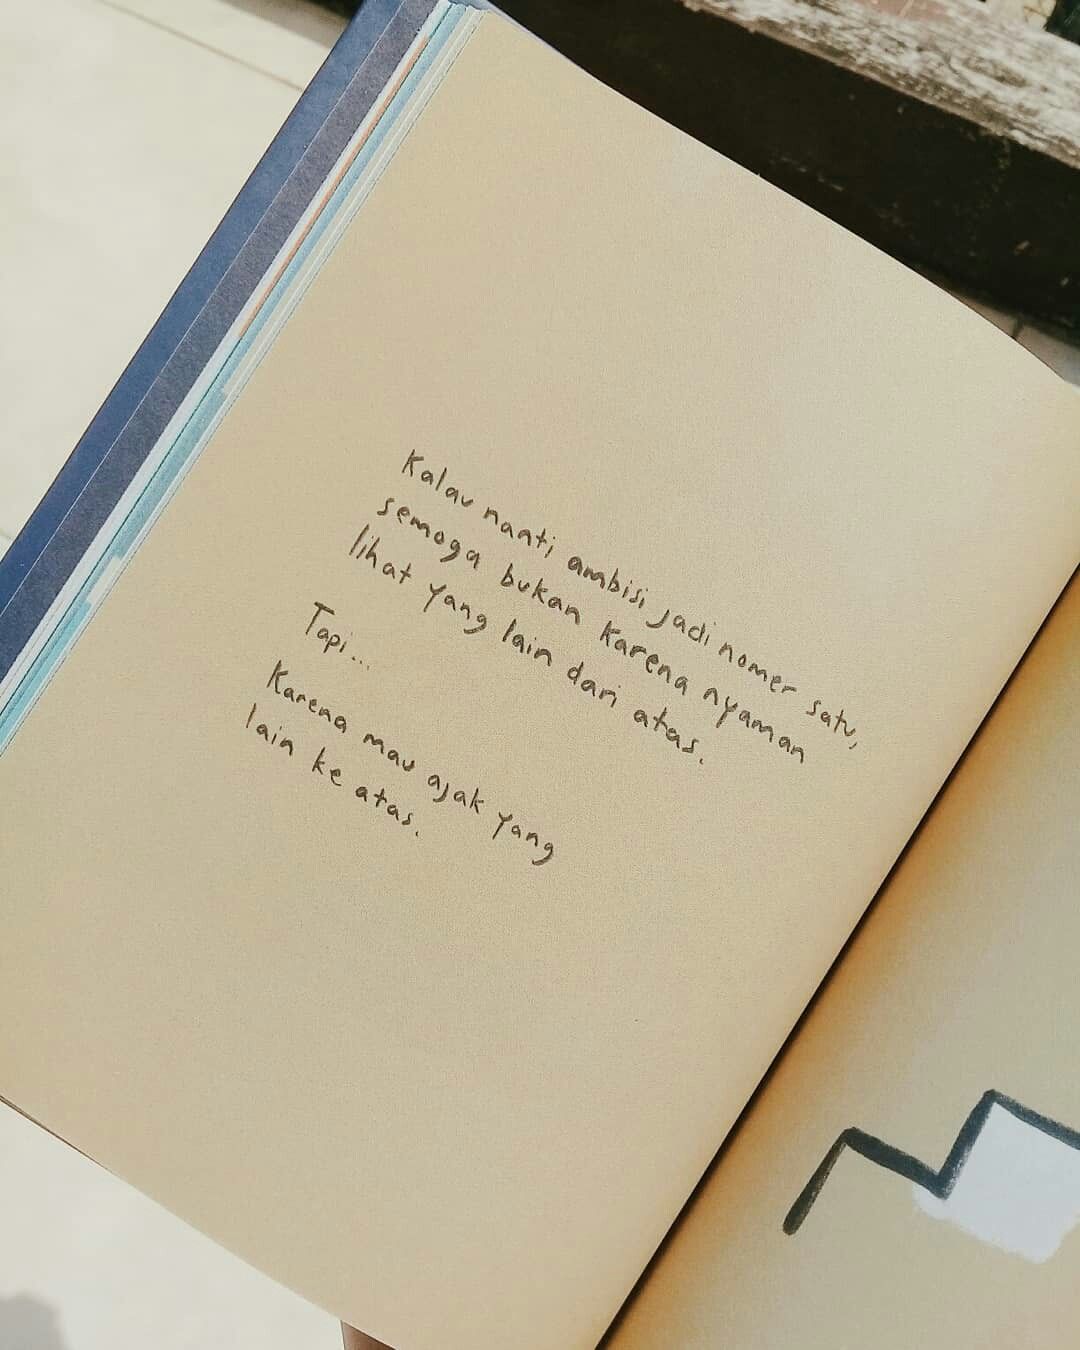 Kalau nanti ambisi jadi nomer satu,
semoga bukan karena nyaman
lihat yang lain dari atas.
Tapi...
Karena mau ajak yang
lain ke atas.